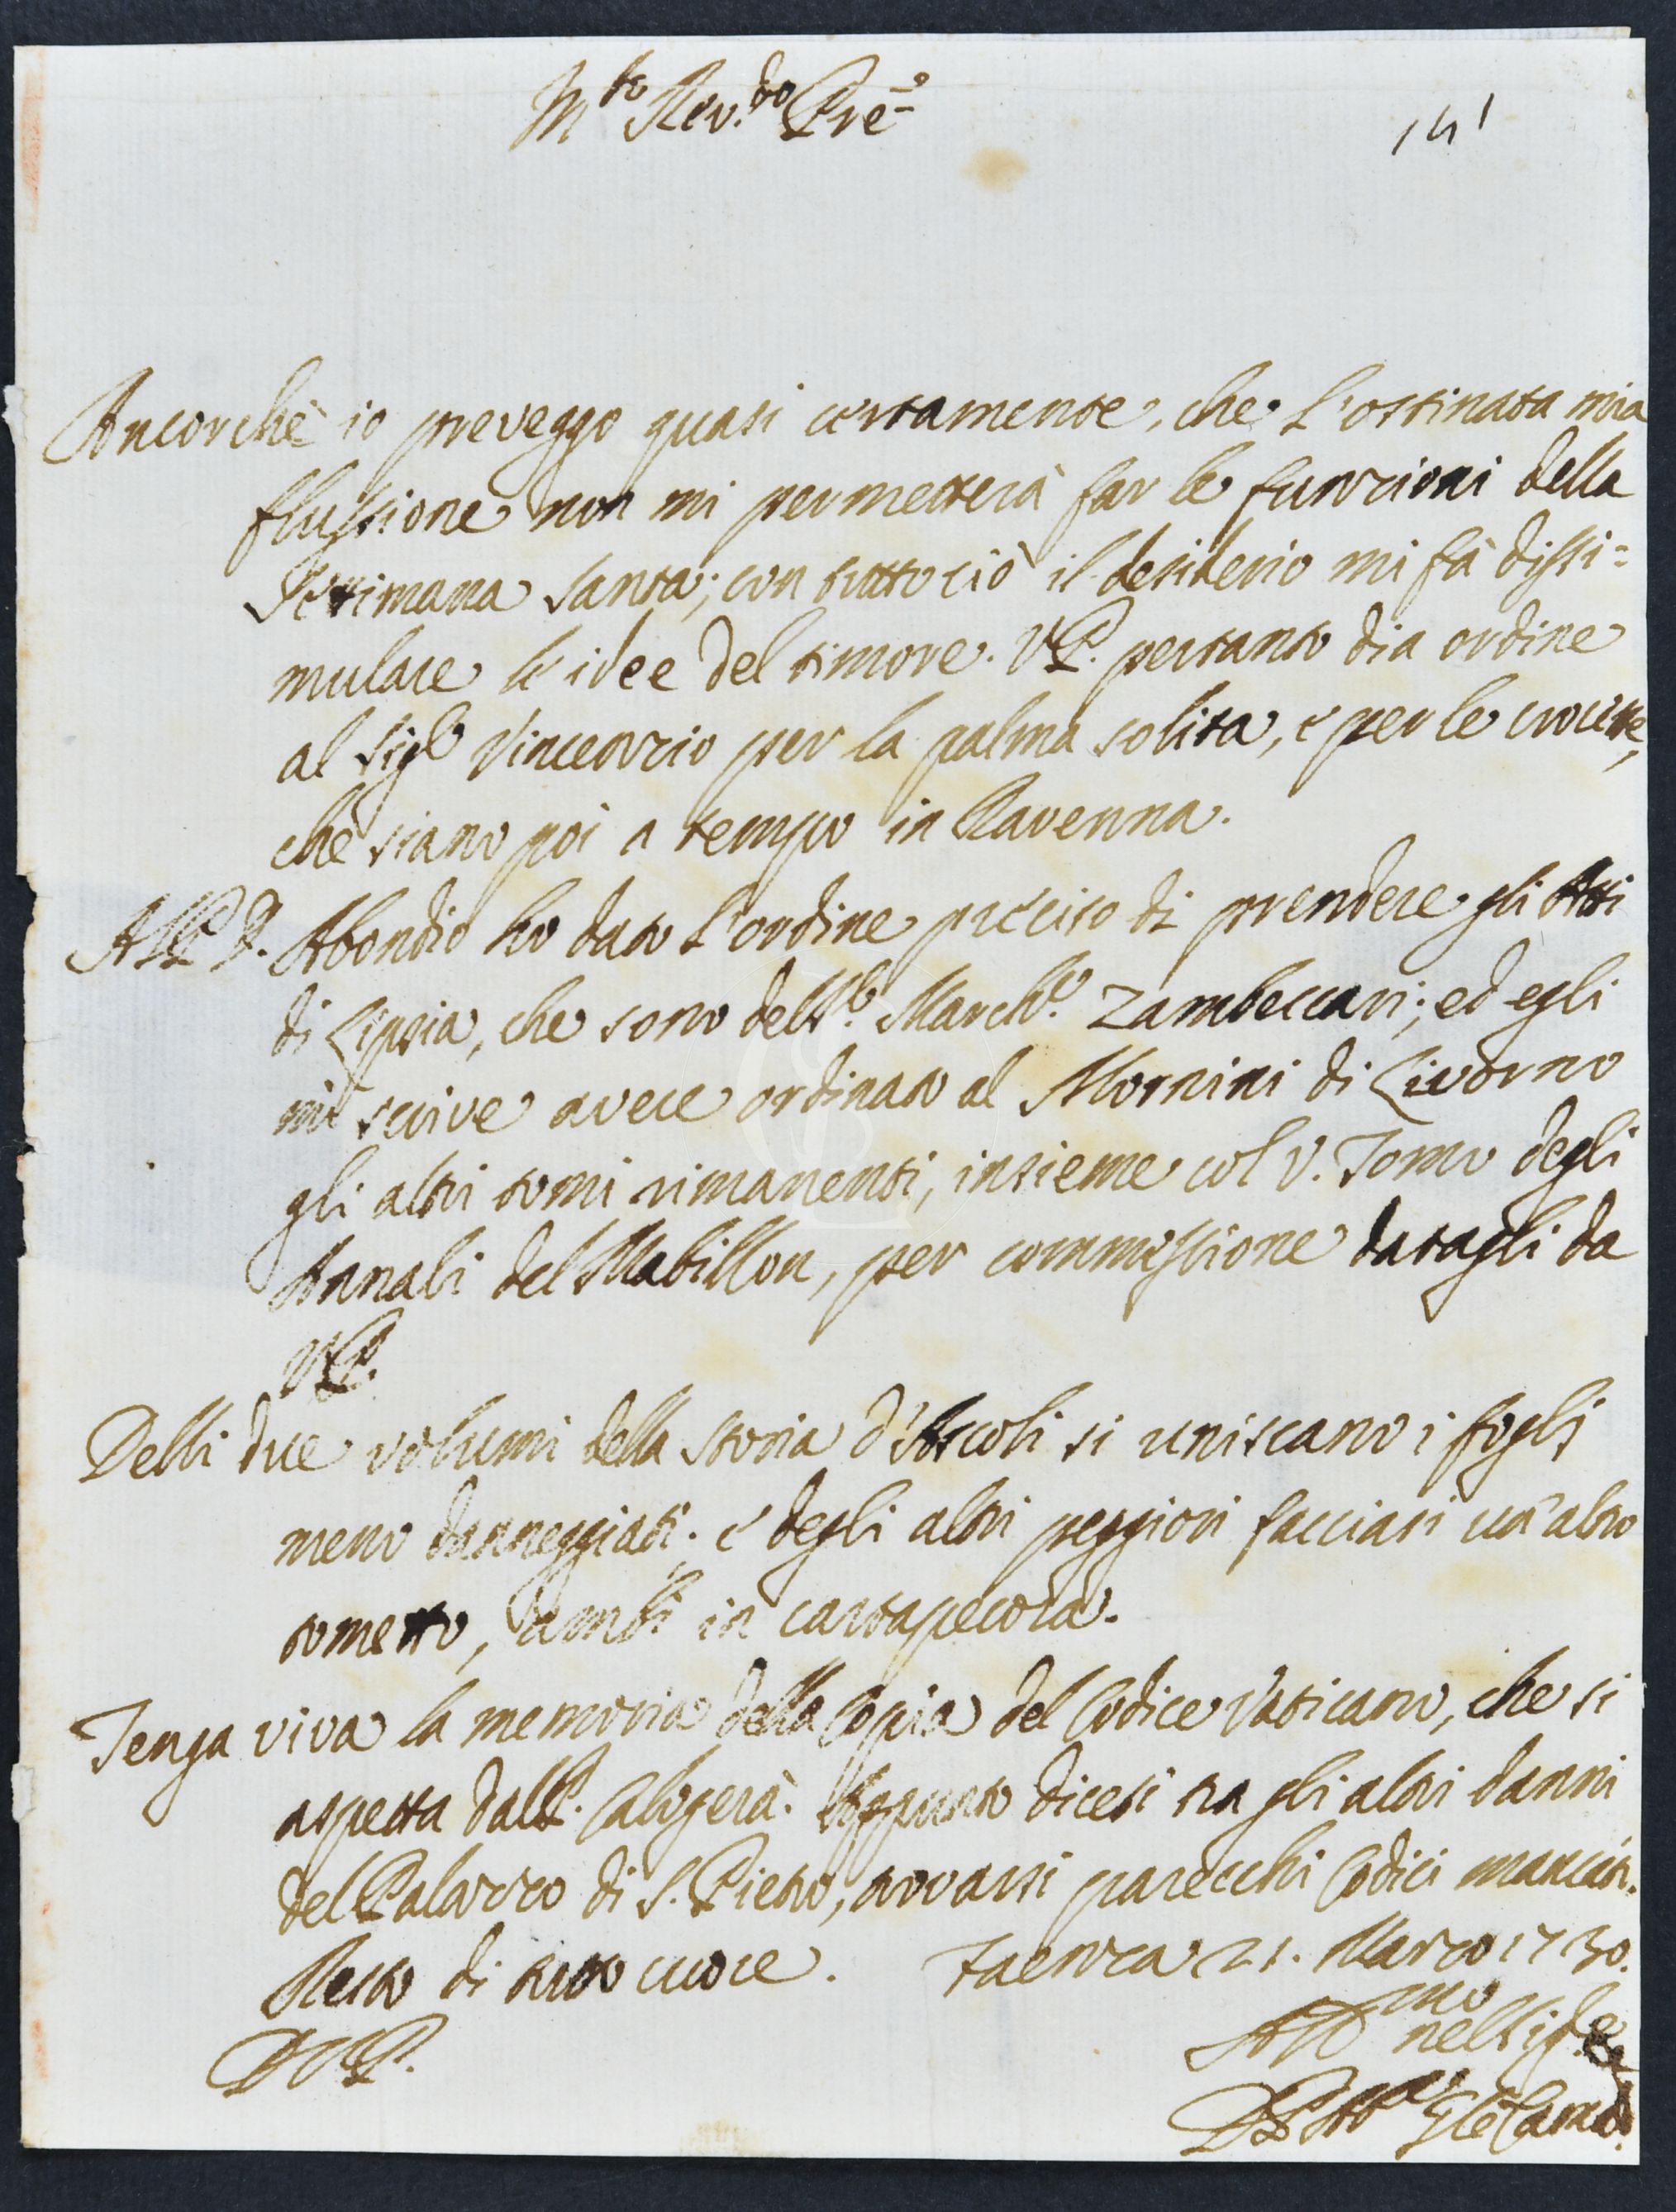 M.to Rev.do Pre
141
Ancorchè io preveggo quasi certamente, che l'ostinata mia
flussione non mi permetterà far le funzioni della
Settimana Santa; con tutto ciò il desiderio mi fà dissi=
mulare le idee del timore. V.P. pertanto dia ordine
al Sig.r Vincenzio per la palma solita, e per le crocette,
chè siano poi a tempo in Ravenna.
Al P. D. Abondio ho dato l'ordine preciso di prendere gli Atti
di Lipsia, che sono del S.r March.e Zambeccari; ed egli
mi scrive avere ordinato al Mornini di Livorno
gli altri tomi rimanenti, insieme col V. Tomo degli
Annali del Mabillon, per commissione datagli da
V.P.
Delli due volumi della Storia d'Ascoli si uniscano i fogli
meno danneggiati; e degli altri peggiori facciasi un'altro
tometto, ambi in cartapecora.
Tenga viva la memoria della Copia del Codice Vaticano, che si
aspetta dal P. Calogerà. Appunto dicesi tra gli altri danni
del Palazzo di S. Pietro, trovarsi parecchi Codici marciti.
Resto di tutto cuore. Faenza 21. Marzo 1730.
D V.P.
Aff.mo nel Sig.re
D. P. Ab.e Gle Camald.